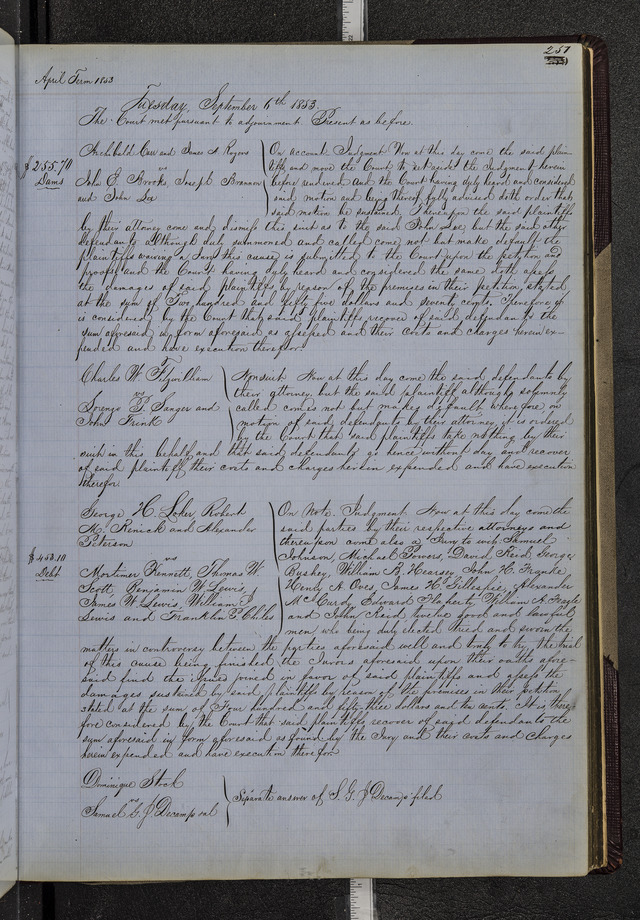 257
April Term 1853
Tuesday, September 6th 1853.
The Court met pursuant to adjournment. Present as before.
$255.70
Dams
Archibald Carr and James A Rogers
vs
John E. Brooks Joseph Brannon
and John Doe
On account. Judgment. Now at this day come the said plain-
tiffs and move the Court to set aside the Judgment herein
before rendered and the Court having duly heard and considered
said motion and being thereof fully advised doth order that
said motion be sustained. Thereupon the said plaintiffs
by their attorney come and dismiss this suit as to the said John Doe, but the said other
defendants although duly summoned and called come not but make default, the
plaintiffs waiving a Jury this cause is submitted to the Court upon the petition and
proofs and the Court having duly heard and considered the same doth assess
the damages of said plaintiffs by reason of the premises in their petition stated
at the sum of Two hundred and fifty five dollars and seventy cents. Therefore it
is considered by the Court that said plaintiffs recover of said defendants the
sum aforesaid in form aforesaid as assessed and their costs and charges herein ex-
pended and have execution therefor.
Charles W. Fitzwilliam
vs
Lorenzo P. Sanger and
John Frink
Nonsuit. Now at this day come the said defendants by
their attorney but the said plaintiff although solemnly
called comes not but makes default, wherefore on
motion of said defendants by their attorney it is ordered
by the Court that said plaintiffs take nothing by their
suit in this behalf and that said defendants go hence without day and recover
of said plaintiff their costs and charges herein expended and have execution
therefor.
$453.10
Debt
George H. Loker Robert
M. Renick and Alexander
Peterson
vs
Mortimer Kennett, Thomas W.
Scott, Benjamin W. Lewis
James W. Lewis, William J.
Lewis and Franklin P. Chiles
On Note. Judgment. Now at this day come the
said parties by their respective attorneys and
thereupon come also a Jury to wit: Samuel
Johnson, Michael Powers, David Reid George
Byshey, William B. Hearsey John H. Franke
Henry A Oves, James H Gillespie, Alexander
McCurdy Edward Flaherty William A Foyle
and John Reid twelve good and lawful
men who being duly elected tried and sworn the
matters in controversy between the parties aforesaid well and truly to try, the trial
of this cause being finished the Jurors aforesaid upon their oaths afore-
said find the issues joined in favor of said plaintiffs and assess the
damages sustained by said plaintiffs by reason of the premises in their petition
stated at the sum of Four hundred and fifty three dollars and ten cents. It is there-
fore considered by the Court that said plaintiffs recover of said defendants the
sum aforesaid in form aforesaid as found by the Jury and their costs and charges
herein expended and have execution therefor.
Dominique Stock
vs
Samuel G. J Decamp et al
Separate answer of S. G. J Decamp filed